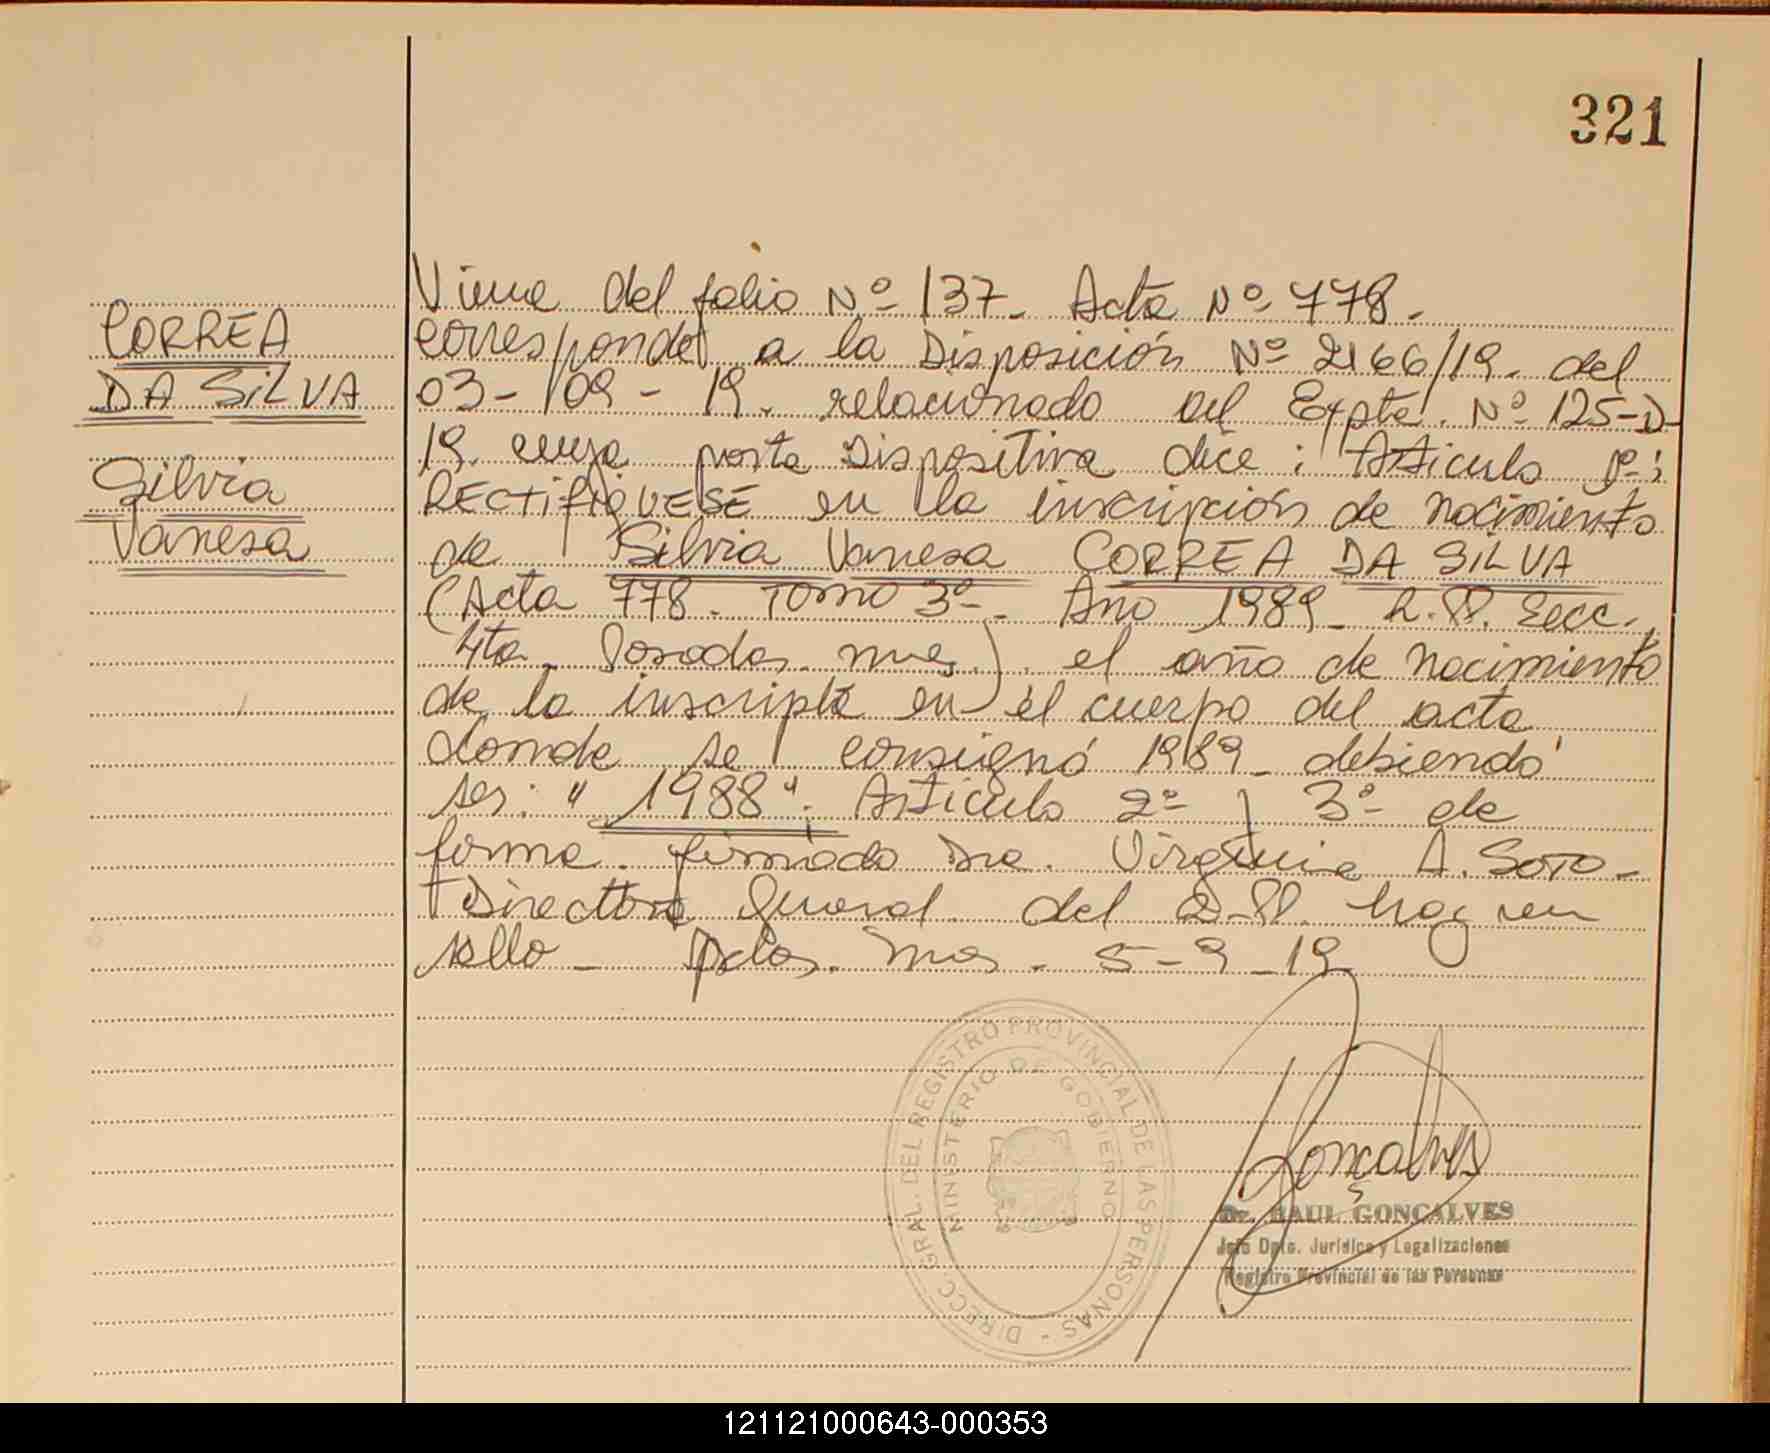 321
CORREA
DA SILVA
Silvia
Vanesa
Viene del folio Nº 137. Acta Nº 778.
corresponde a la Disposición Nº 2166/19. del
03-09-19. relacionado al Expte. Nº 125-D-
19. cuya parte Dispositiva dice: Artículo 1º:
RECTIFIQUESE en la inscripción de nacimiento
de Silvia Vanesa CORREA DA SILVA
(Acta 778. Tomo 3º. Año 1989. R.P. Secc.
4ta. Posadas. Mnes.). el año de nacimiento
de la inscripta en el cuerpo del acta
donde se consignó 1989. debiendo
ser: "1988". Artículo 2º y 3º de
forma. firmado Dra. Virginia A. SOTO-
Directora General del R.P. hay un
sello - Pdas. Mnes. 5-9-19
DIRECC. GRAL. DEL REGISTRO PROVINCIAL DE LAS PERSONAS -
MINISTERIO DE GOBIERNO
Gonçalves
Dr. RAUL GONÇALVES
Jefe Dpto. Jurídico y Legalizaciones
Registro Provincial de las Personas
121121000643-000353